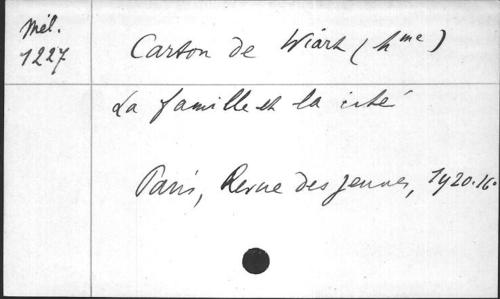 Mél.
1227
Carton de Wiart (Mme)
La famille et la cité
Paris, Revue des Jeunes, 1920. 16°